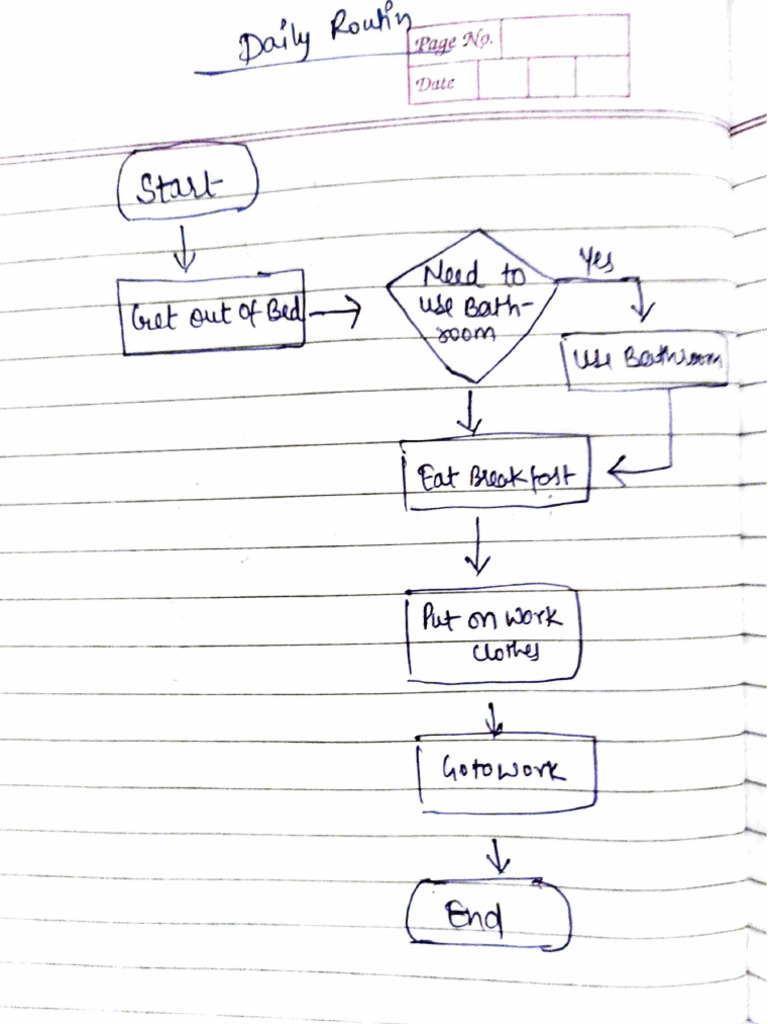 Daily Routin
Page No.
Date
Start
Get out of Bed
Need to
use Bath-
room
Yes
Use Bathroom
Eat Breakfast
Put on work
clothes
Go to work
End